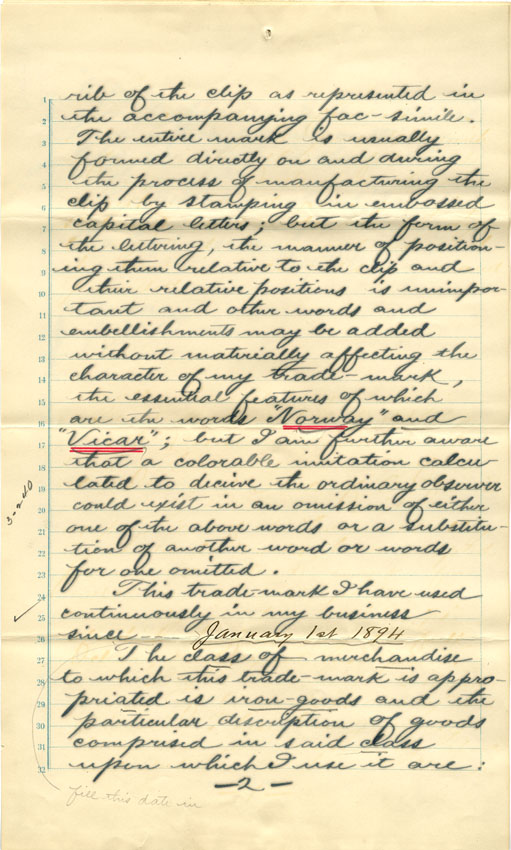 1 rib of the clip as represented in
2 the accompanying fac-simile.
3 The entire mark is usually
4 formed directly on and during
5 the process of manufacturing the
6 clip by stamping in embossed
7 capital letters; but the form of
8 the lettering, the manner of position-
9 ing them relative to the clip and
10 their relative positions is unimpor-
11 tant and other words and
12 embellishments may be added
13 without materially affecting the
14 character of my trade-mark,
15 the essential features of which
16 are the words "Norway" and
17 "Vicar"; but I am further aware
18 that a colorable imitation calcu-
19 lated to decieve the ordinary observer
20 could exist in an omission of either
21 one of the above words or a substitu-
22 tion of another word or words
23 for one omitted.
24 This trade-mark I have used
25 continuously in my business
26 since January 1st 1894
27 The class of merchandise
28 to which this trade-mark is appro-
29 priated is iron-goods and the
30 particular description of goods
31 comprised in said class
32 upon which I use it are:
-2-
fill this date in